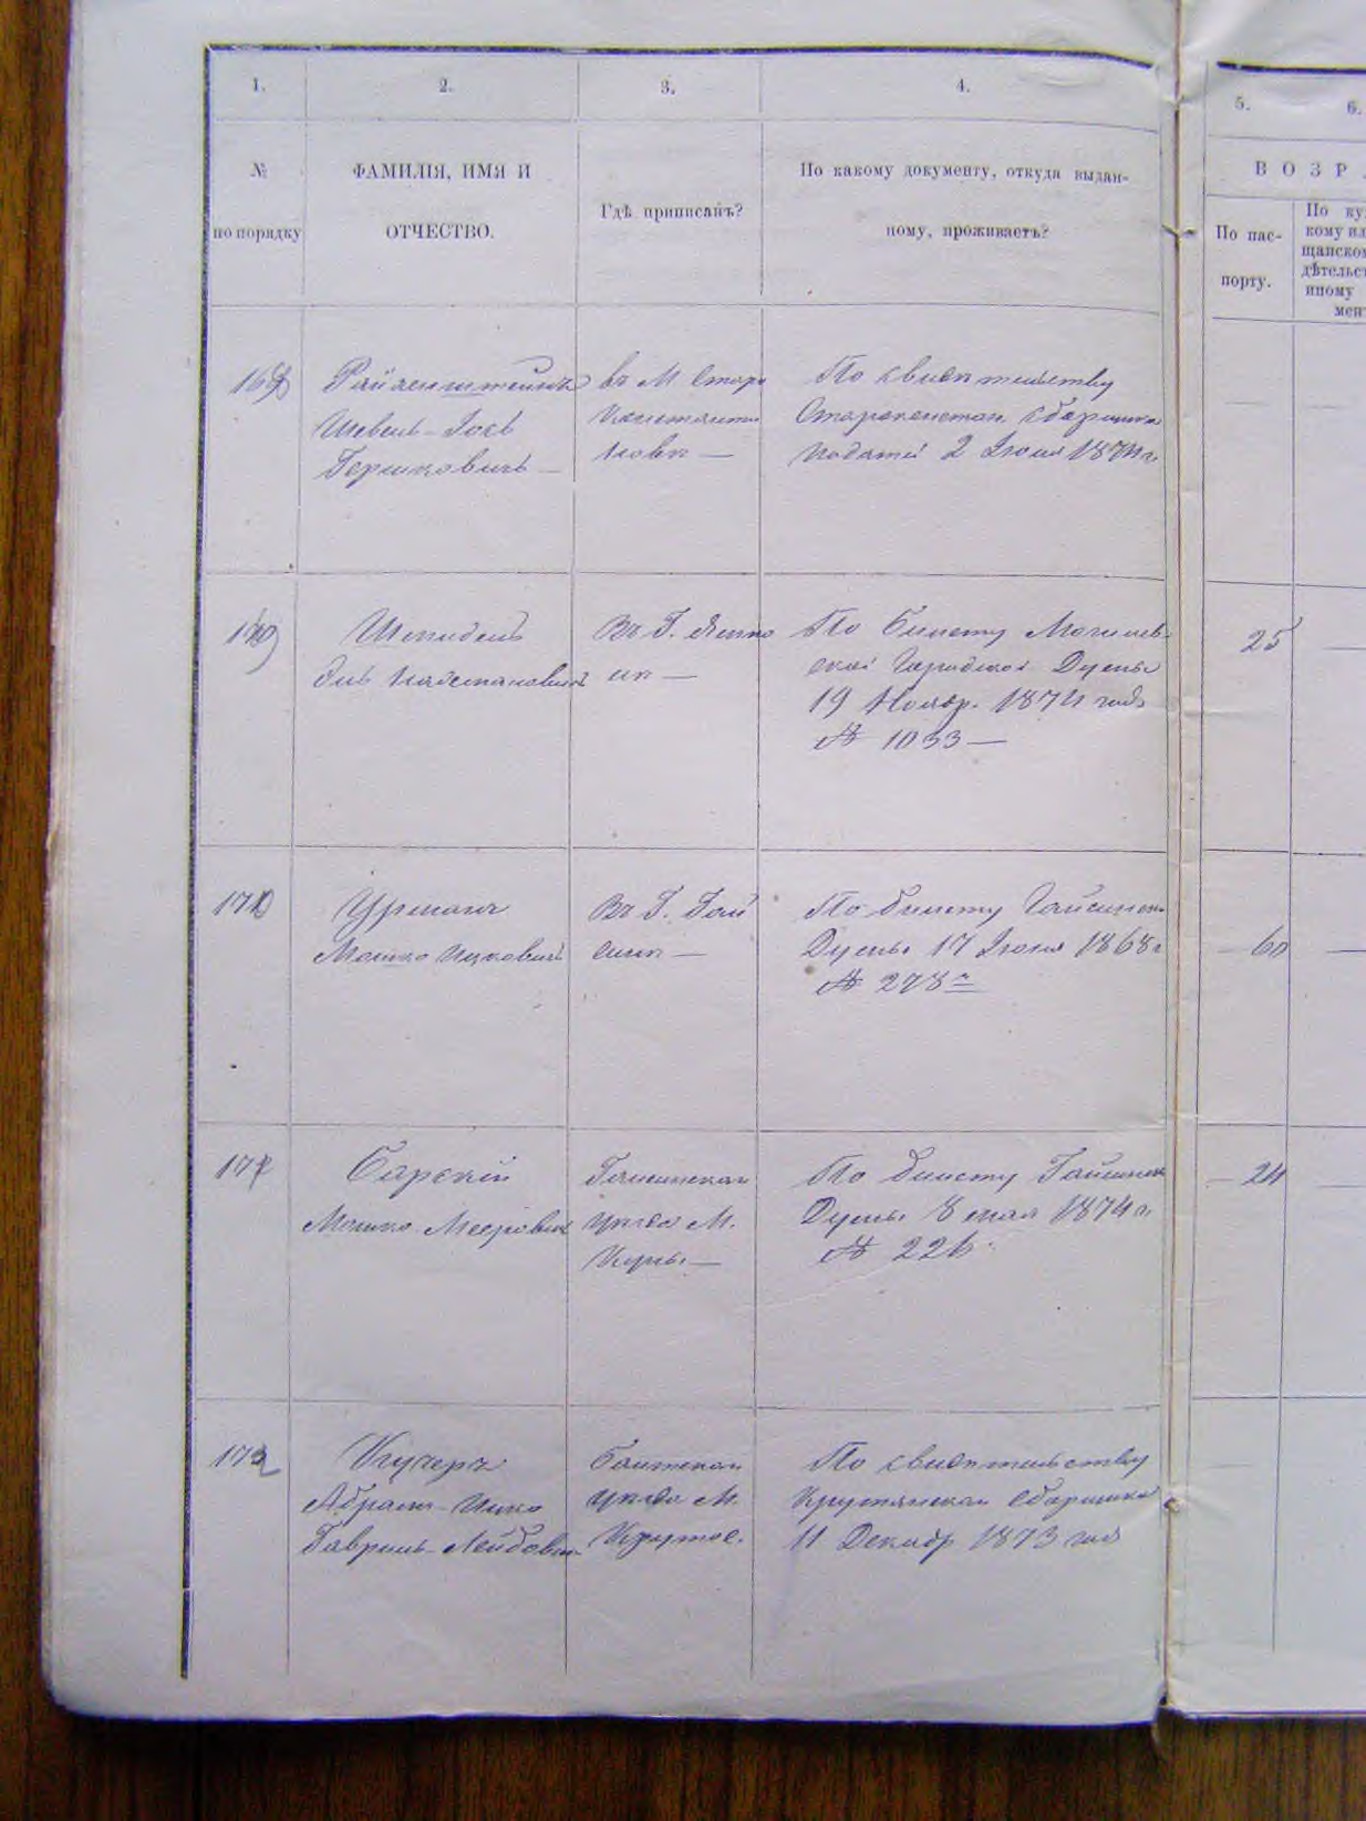 1.
2.
3.
4.
5.
6.
№
по порядку
ФАМИЛІЯ, ИМЯ И
ОТЧЕСТВО.
Гдѣ приписанъ?
По какому документу, откуда выдан-
ному, проживаетъ?
ВОЗР
По пас-
порту.
По ку
кому ил
щанском
дѣтельст
иному
мен
Гершковичъ
въ М Старо
Константи
новѣ —
По свидѣтельству
Староконстан. сборщика
податей 2 Іюня 1874 г.
Въ Г.
По билету Могилев-
ской Городской Думы
19 Ноябр. 1874 года
№ 1033 —
25
Урманъ
Мошко Ицковичъ
Въ Г. Гай
синѣ —
По билету Гайсинск.
Думы 17 Іюня 1868 г
№ 278
60
171
Барскій
Мошко Мееровичъ
Гайсинскаго
уѣзда М.
Куны —
По билету Гайсинск
Думы 8 мая 1874 г.
№ 226
24
172
Кучеръ
Абрамъ-Ицко
Гаврилъ-Лейбович
Балтскаго
уѣзда М.
Крутое.
По свидѣтельству
Крутянскаго сборщика
11 Декабр 1873 года